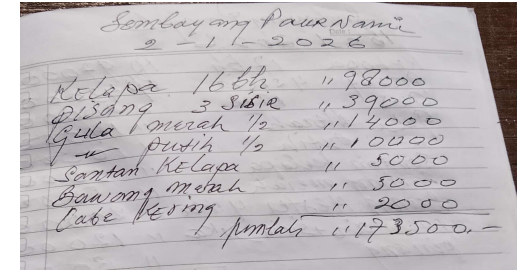 Sembayang Paur Nami
2-1-2026
Kelapa 16 bh " 98000
Pisang 3 Sisir " 39000
Gula merah 1/2 " 14000
" putih 1/2 " 10000
Santan Kelapa " 5000
Bawang merah " 5000
Cabe Kering " 2000
Jumlah " 173.500.-